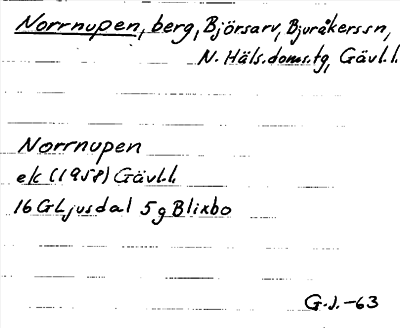 Norrnupen, berg, Björsarv, Bjuråkerssn,
N. Häls.doms.tg, Gävl.l.
Norrnupen
e/c (1958) Gävl.l.
16G Ljusdal 5g Blixbo
G.J.-63